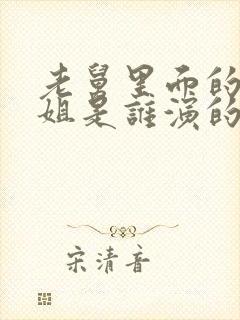 老舅里面的
姐是谁演的
宋清音